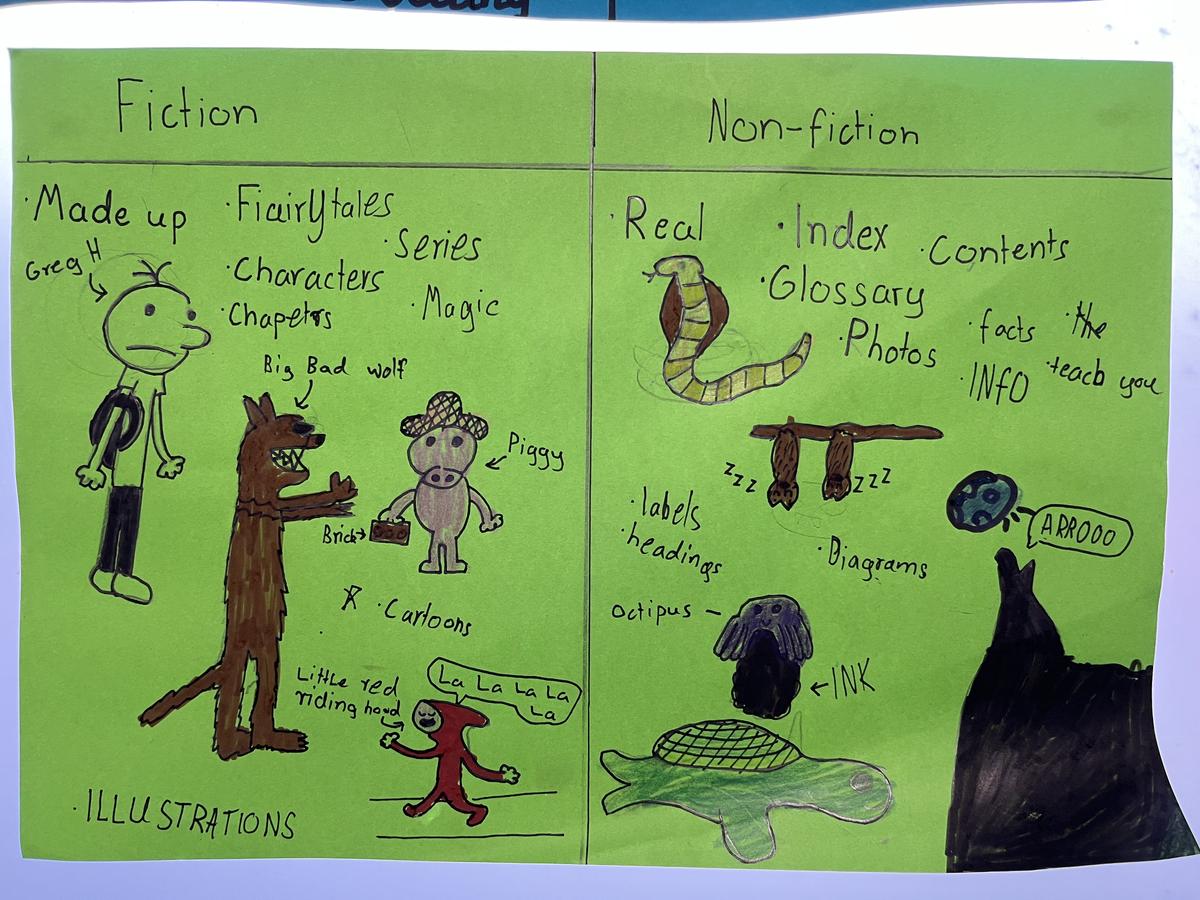 Fiction
Non-fiction
·Made up
·Fiairytales
·Series
·Characters
·Magic
·Chapetrs
Greg H
Big Bad wolf
Piggy
Brick
·Cartoons
Little red
riding hood
La La La La
La
·ILLUSTRATIONS
·Real
·Index
·Contents
·Glossary
·Photos
·facts
·the
·INfO
·teach you
zzz
zzz
·labels
·headings
·Diagrams
ARROOO
Octipus
INK